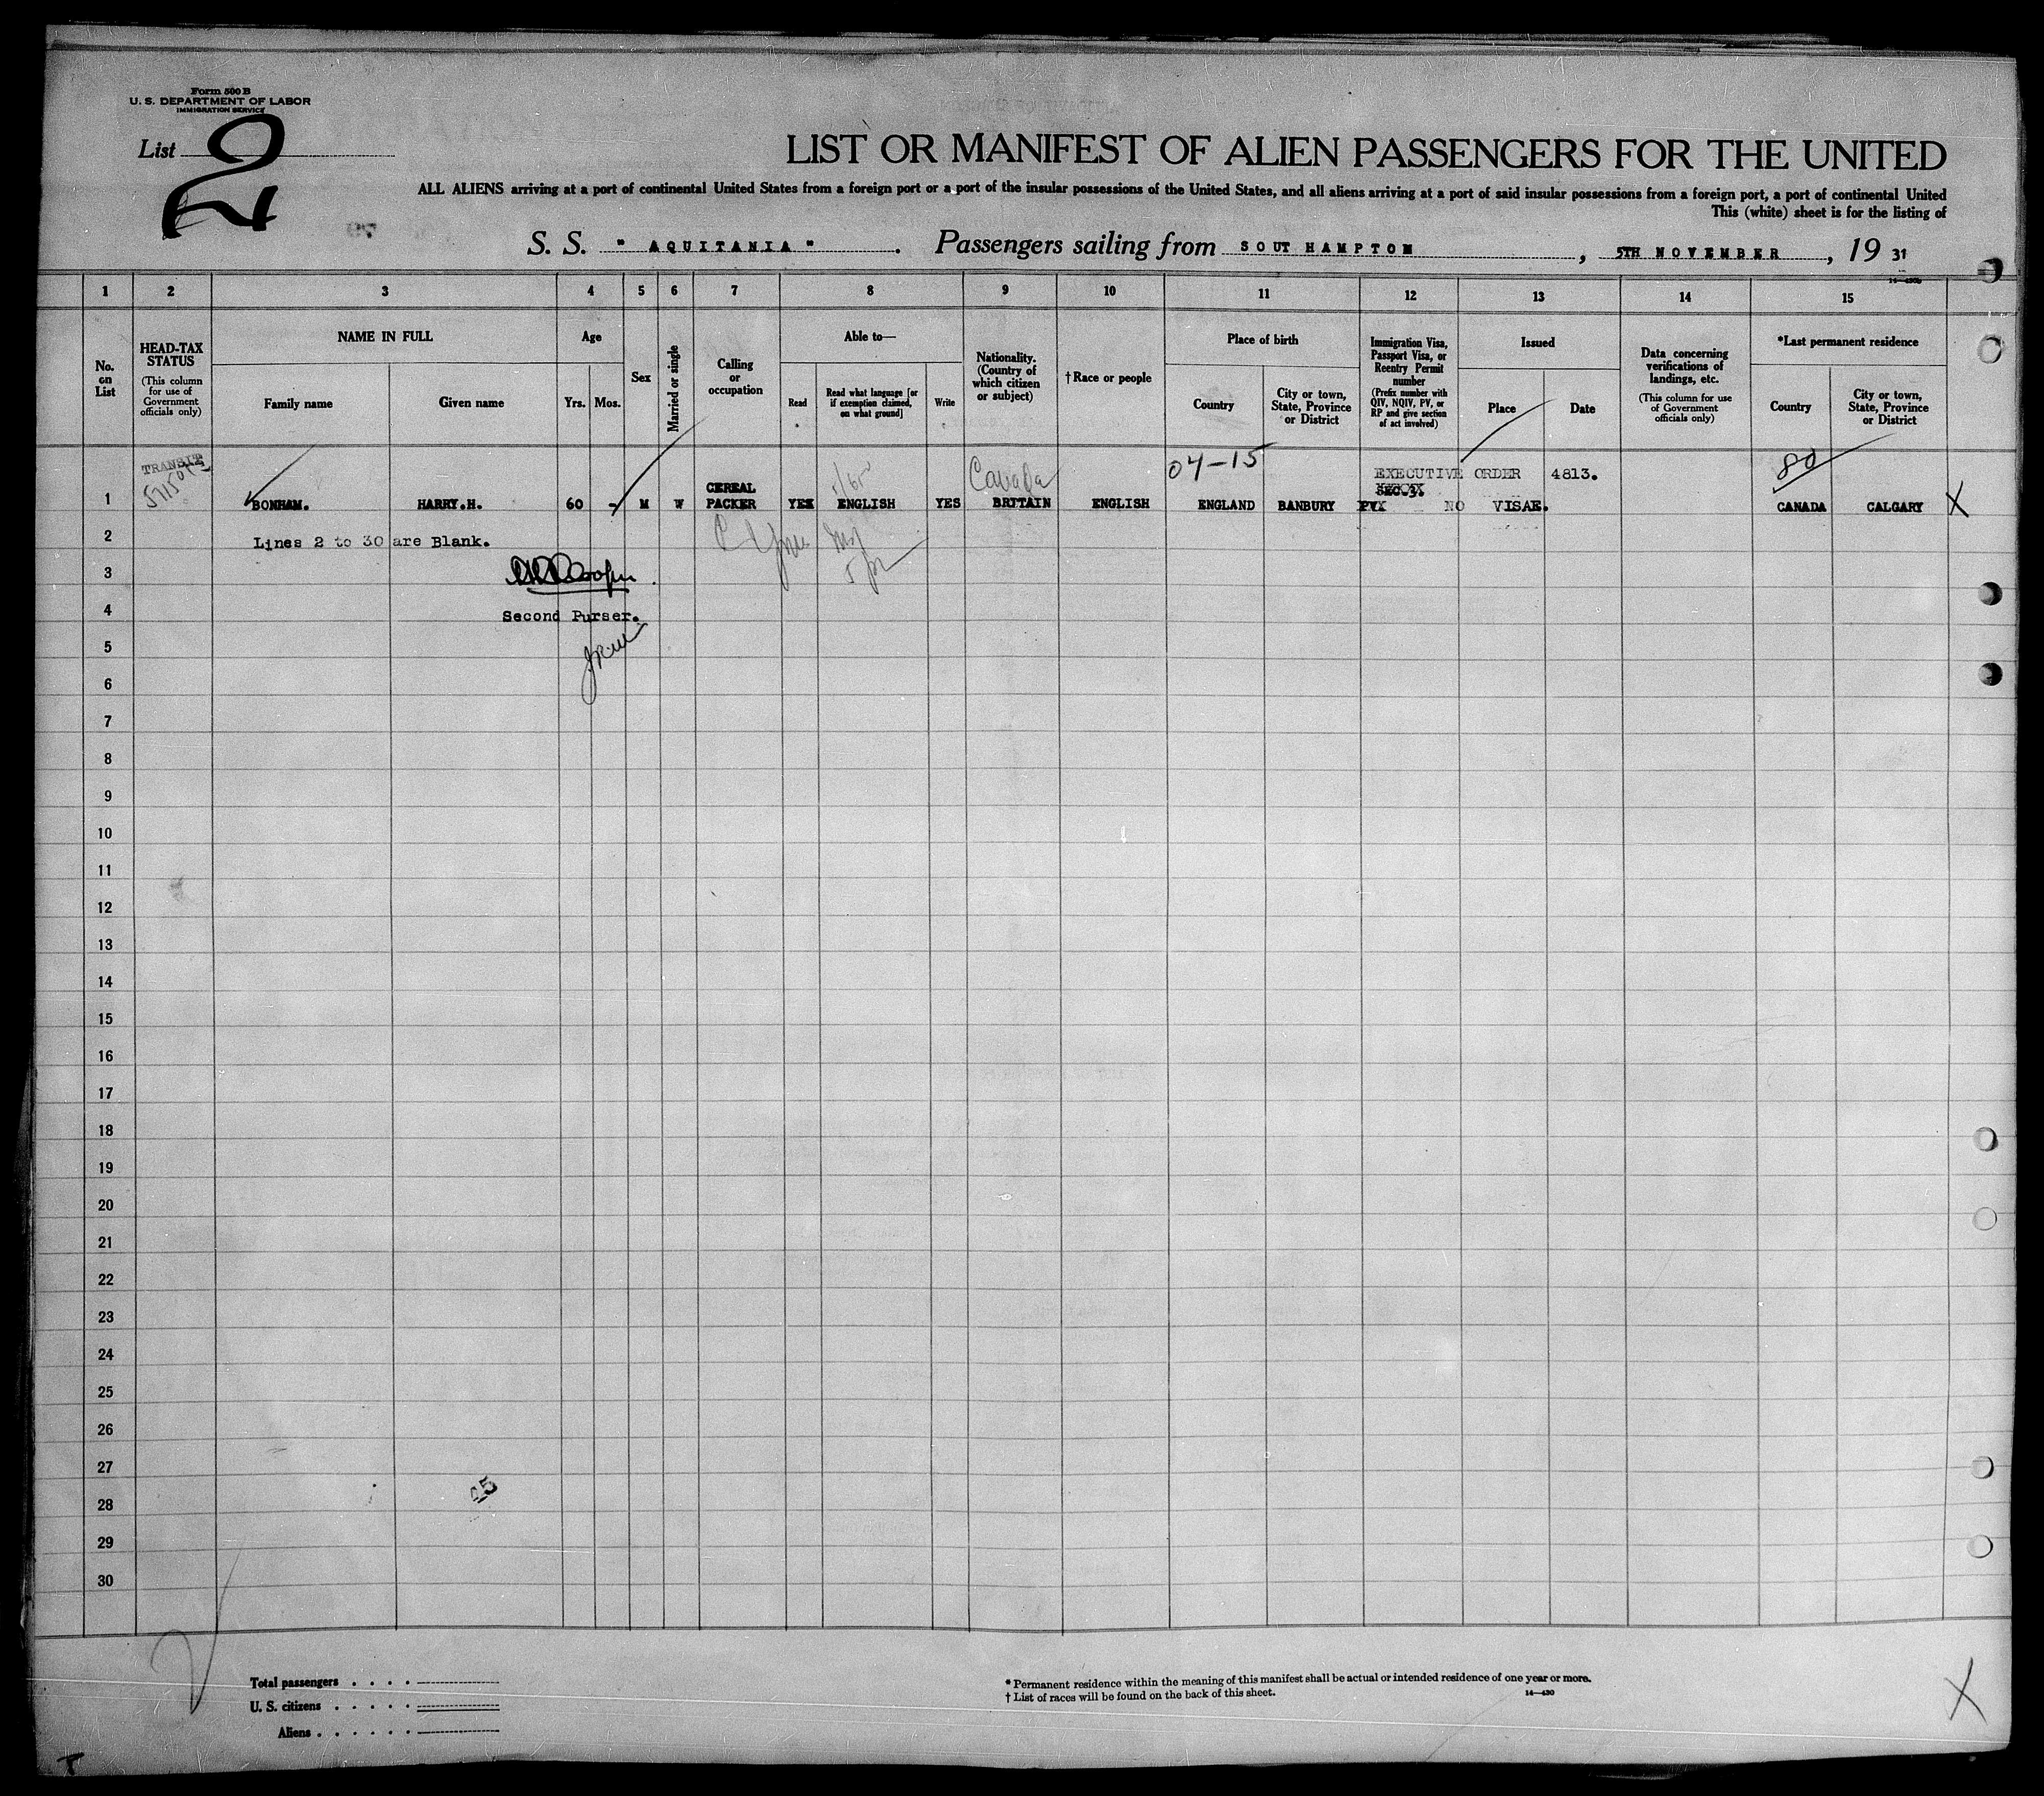 Form 500 B
U. S. DEPARTMENT OF LABOR
IMMIGRATION SERVICE
List 2
LIST OR MANIFEST OF ALIEN PASSENGERS FOR THE UNITED
ALL ALIENS arriving at a port of continental United States from a foreign port or a port of the insular possessions of the United States, and all aliens arriving at a port of said insular possessions from a foreign port, a port of continental United
This (white) sheet is for the listing of
S. S. " AQUITANIA ". Passengers sailing from SOUTHAMPTON, 5TH NOVEMBER, 19 31
1 2 3 4 5 6 7 8 9 10 11 12 13 14 15
No. on List
HEAD-TAX STATUS
(This column for use of Government officials only)
NAME IN FULL
Family name
Given name
Age
Yrs. Mos.
Sex
Married or single
Calling or occupation
Able to—
Read
Read what language [or if exemption claimed, on what ground]
Write
Nationality. (Country of which citizen or subject)
†Race or people
Place of birth
Country
City or town, State, Province or District
Immigration Visa, Passport Visa, or Reentry Permit number
(Prefix number with QIV, NQIV, PV, or RP and give section of act involved)
Issued
Place
Date
Data concerning verifications of landings, etc.
(This column for use of Government officials only)
*Last permanent residence
Country
City or town, State, Province or District
TRANSIT
Canada
04-15
EXECUTIVE ORDER 4813.
SEC.3.
80
1 BONHAM. HARRY.H. 60 - M W CEREAL PACKER YES ENGLISH YES BRITAIN ENGLISH ENGLAND BANBURY NO VISAE. CANADA CALGARY X
2 Lines 2 to 30 are Blank.
3
4 Second Purser.
5
6
7
8
9
10
11
12
13
14
15
16
17
18
19
20
21
22
23
24
25
26
27
28
29
30
Total passengers . . . .
U. S. citizens . . . . .
Aliens . . . . . .
* Permanent residence within the meaning of this manifest shall be actual or intended residence of one year or more.
† List of races will be found on the back of this sheet.
14—430
X